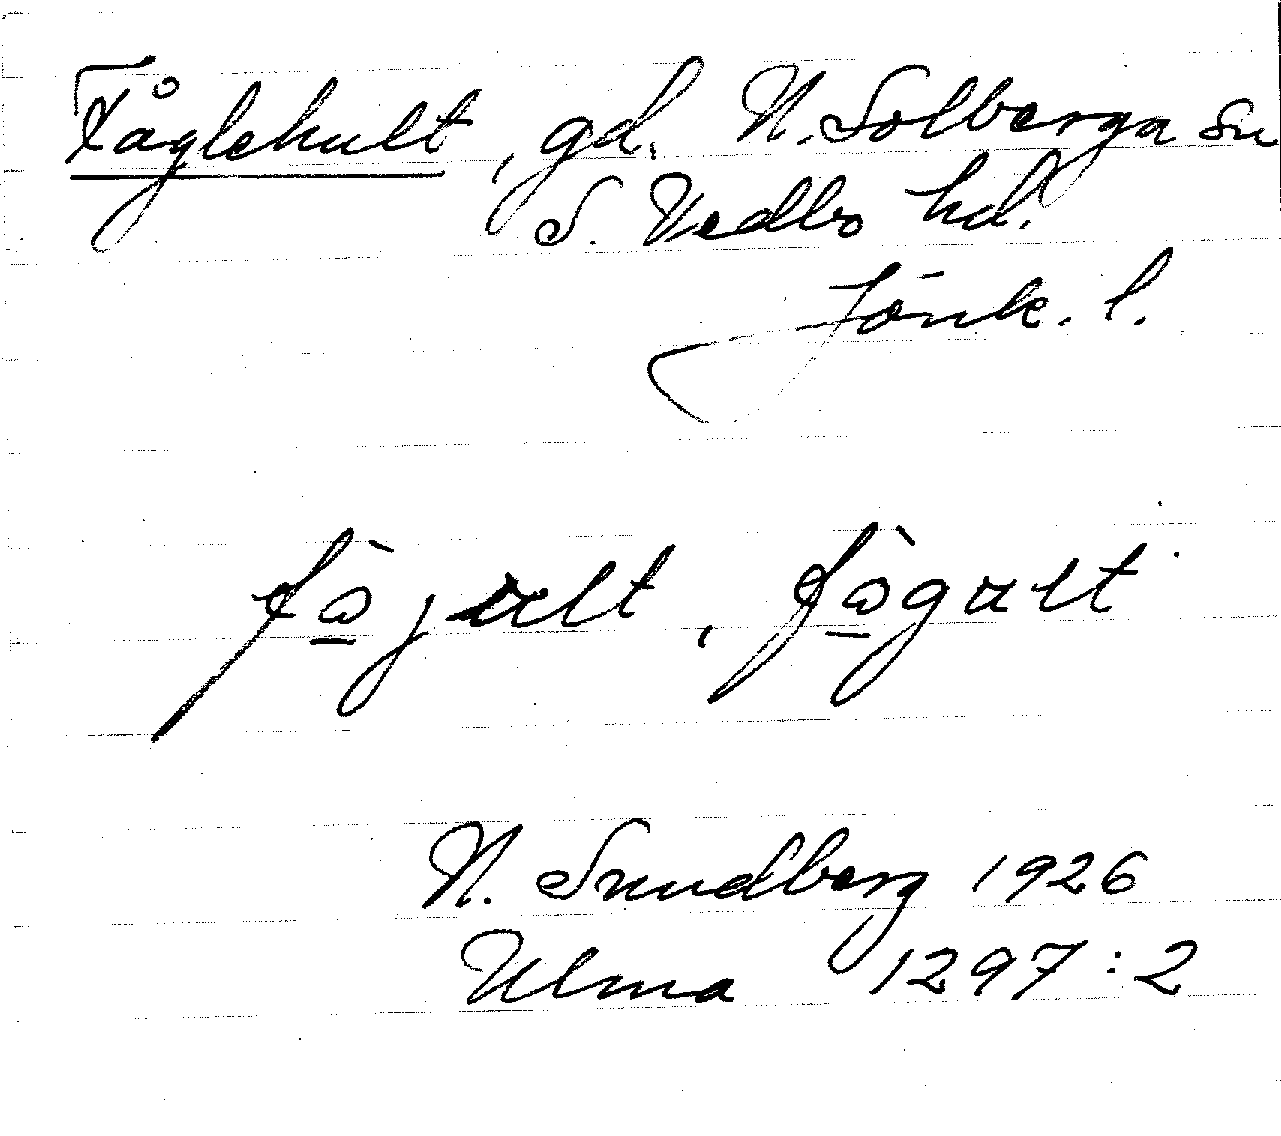 Fåglehult, gd. N. Solberga sn
S. Vedbo hd.
Jönk. l.
N. Sundberg 1926
Ulma 1297:2